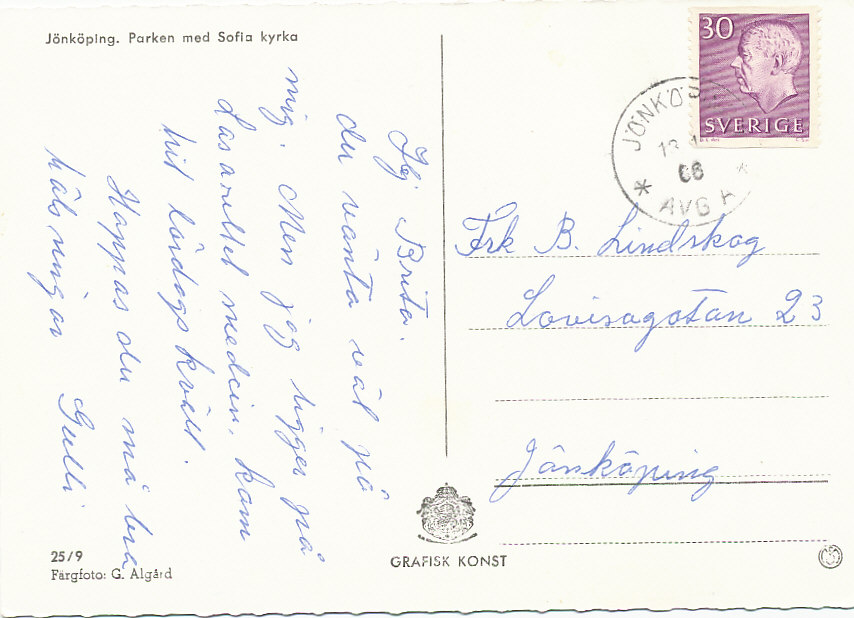 Jönköping. Parken med Sofia kyrka
Hej Brita.
du vänta väl på
mig. Men jag ligger på
Lasarettet medcin, kom
hit lördags kväll.
Hoppas du må bra
hälsningar Gulli
25/9
Färgfoto: G. Algård
GRAFISK KONST
30
SVERIGE
JÖNKÖ
13
66
* AVG *
Frk B. Lindskog
Lovisagatan 23
Jönköping